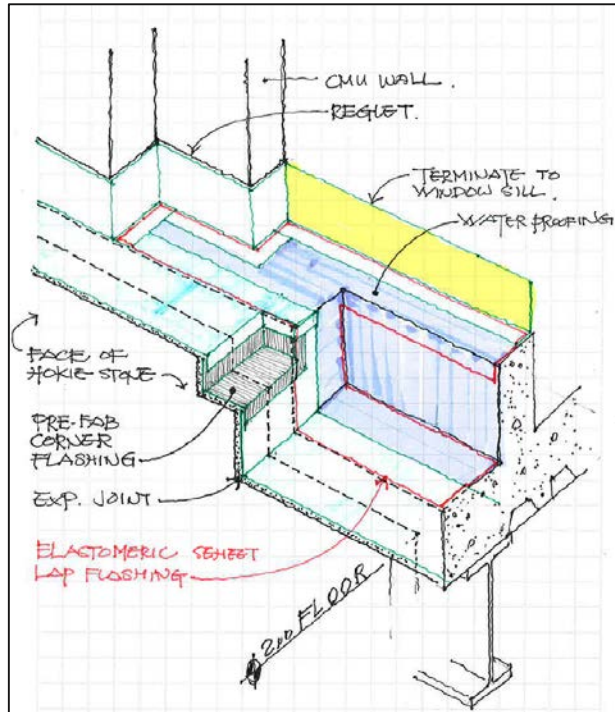 CMU WALL.
REGLET.
TERMINATE TO
WINDOW SILL.
WATER PROOFING
FACE OF
HOKIE STONE
PRE-FAB
CORNER
FLASHING
EXP. JOINT
ELASTOMERIC SEHEET
LAP FLASHING
2ND FLOOR